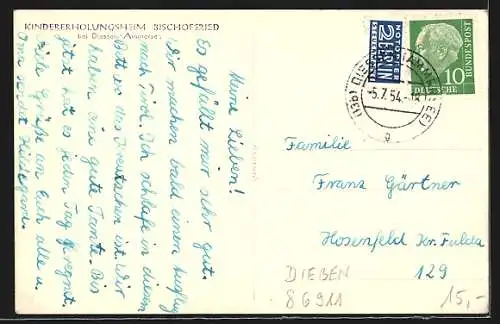 KINDERERHOLUNGSHEIM BISCHOFSRIED
bei Diessen/Ammersee
Meine Lieben!
Es gefällt mir sehr gut.
Wir machen bald einen Ausflug
nach Tirol. Ich schlafe in diesem
Bett wo das Kreuzchen ist. Wir
haben eine gute Tante. Bis
jetzt hat es jeden Tag geregnet.
Viele Grüße an Euch alle u.
Oma sendet Hildegard.
NOTOPFER
2 BERLIN
STEUERMARKE
DEUTSCHE BUNDESPOST
10
(13b) DIESSEN (AMMERSEE)
-5.7.54.
a
Familie
Franz Gärtner
Hosenfeld Kr. Fulda
129
DIEßEN
86911
15,-